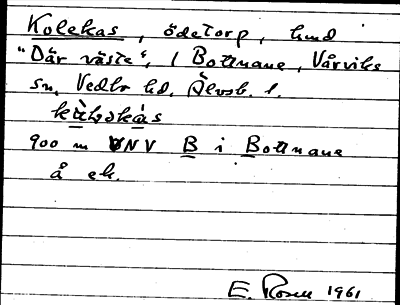 Kolekas, ödetorp, hmd
"Där väste", 1 Bottnane, Vårviks
sn, Vedbo hd, Älvsb. l.
900 m VNV B i Bottnane
å ek.
E. Rosell 1961